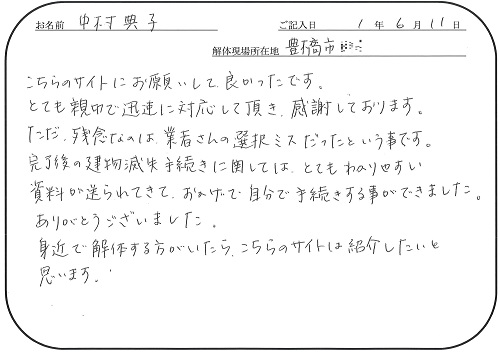 お名前 中村典子 ご記入日 1年6月11日
解体現場所在地 豊橋市
こちらのサイトにお願いして良かったです。
とても親切で迅速に対応して頂き、感謝しております。
ただ、残念なのは、業者さんの選択ミスだったという事です。
完了後の建物滅失手続きに関しては、とてもわかりやすい
資料が送られてきて、おかげで自分で手続きする事ができました。
ありがとうございました。
身近で解体する方がいたら、こちらのサイトは紹介したいと
思います。